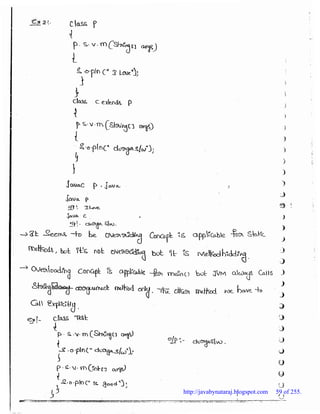 Ex 2:- class P
{
p. s. v. m(String[] args)
{
S.o.pln(" I Love");
}
}
class C extends P
{
p s.v.m (String[] args)
{
S.o.pln(" durga s/w");
}
}
javac P.java
java P
o/p: I Love
java C
o/p:- durga s/w.
→ It Seems to be overriding Concept is applicable for Static
methods, but it's not overriding but it is methodhiding.
→ Overloading Concept is applicable for main() but JVM always Calls
String[] argument method only. The other method we have to
Call Explicitly.
eg:- class Test
{
p. s. v. m(String[] args)
{
S.o.pln(" durga s/w");
}
o/p:- durga s/w.
p. s. v. m(int[] args)
{
S.o.pln(" is good");
}
}
http://javabynataraj.blogspot.com 59 of 255.